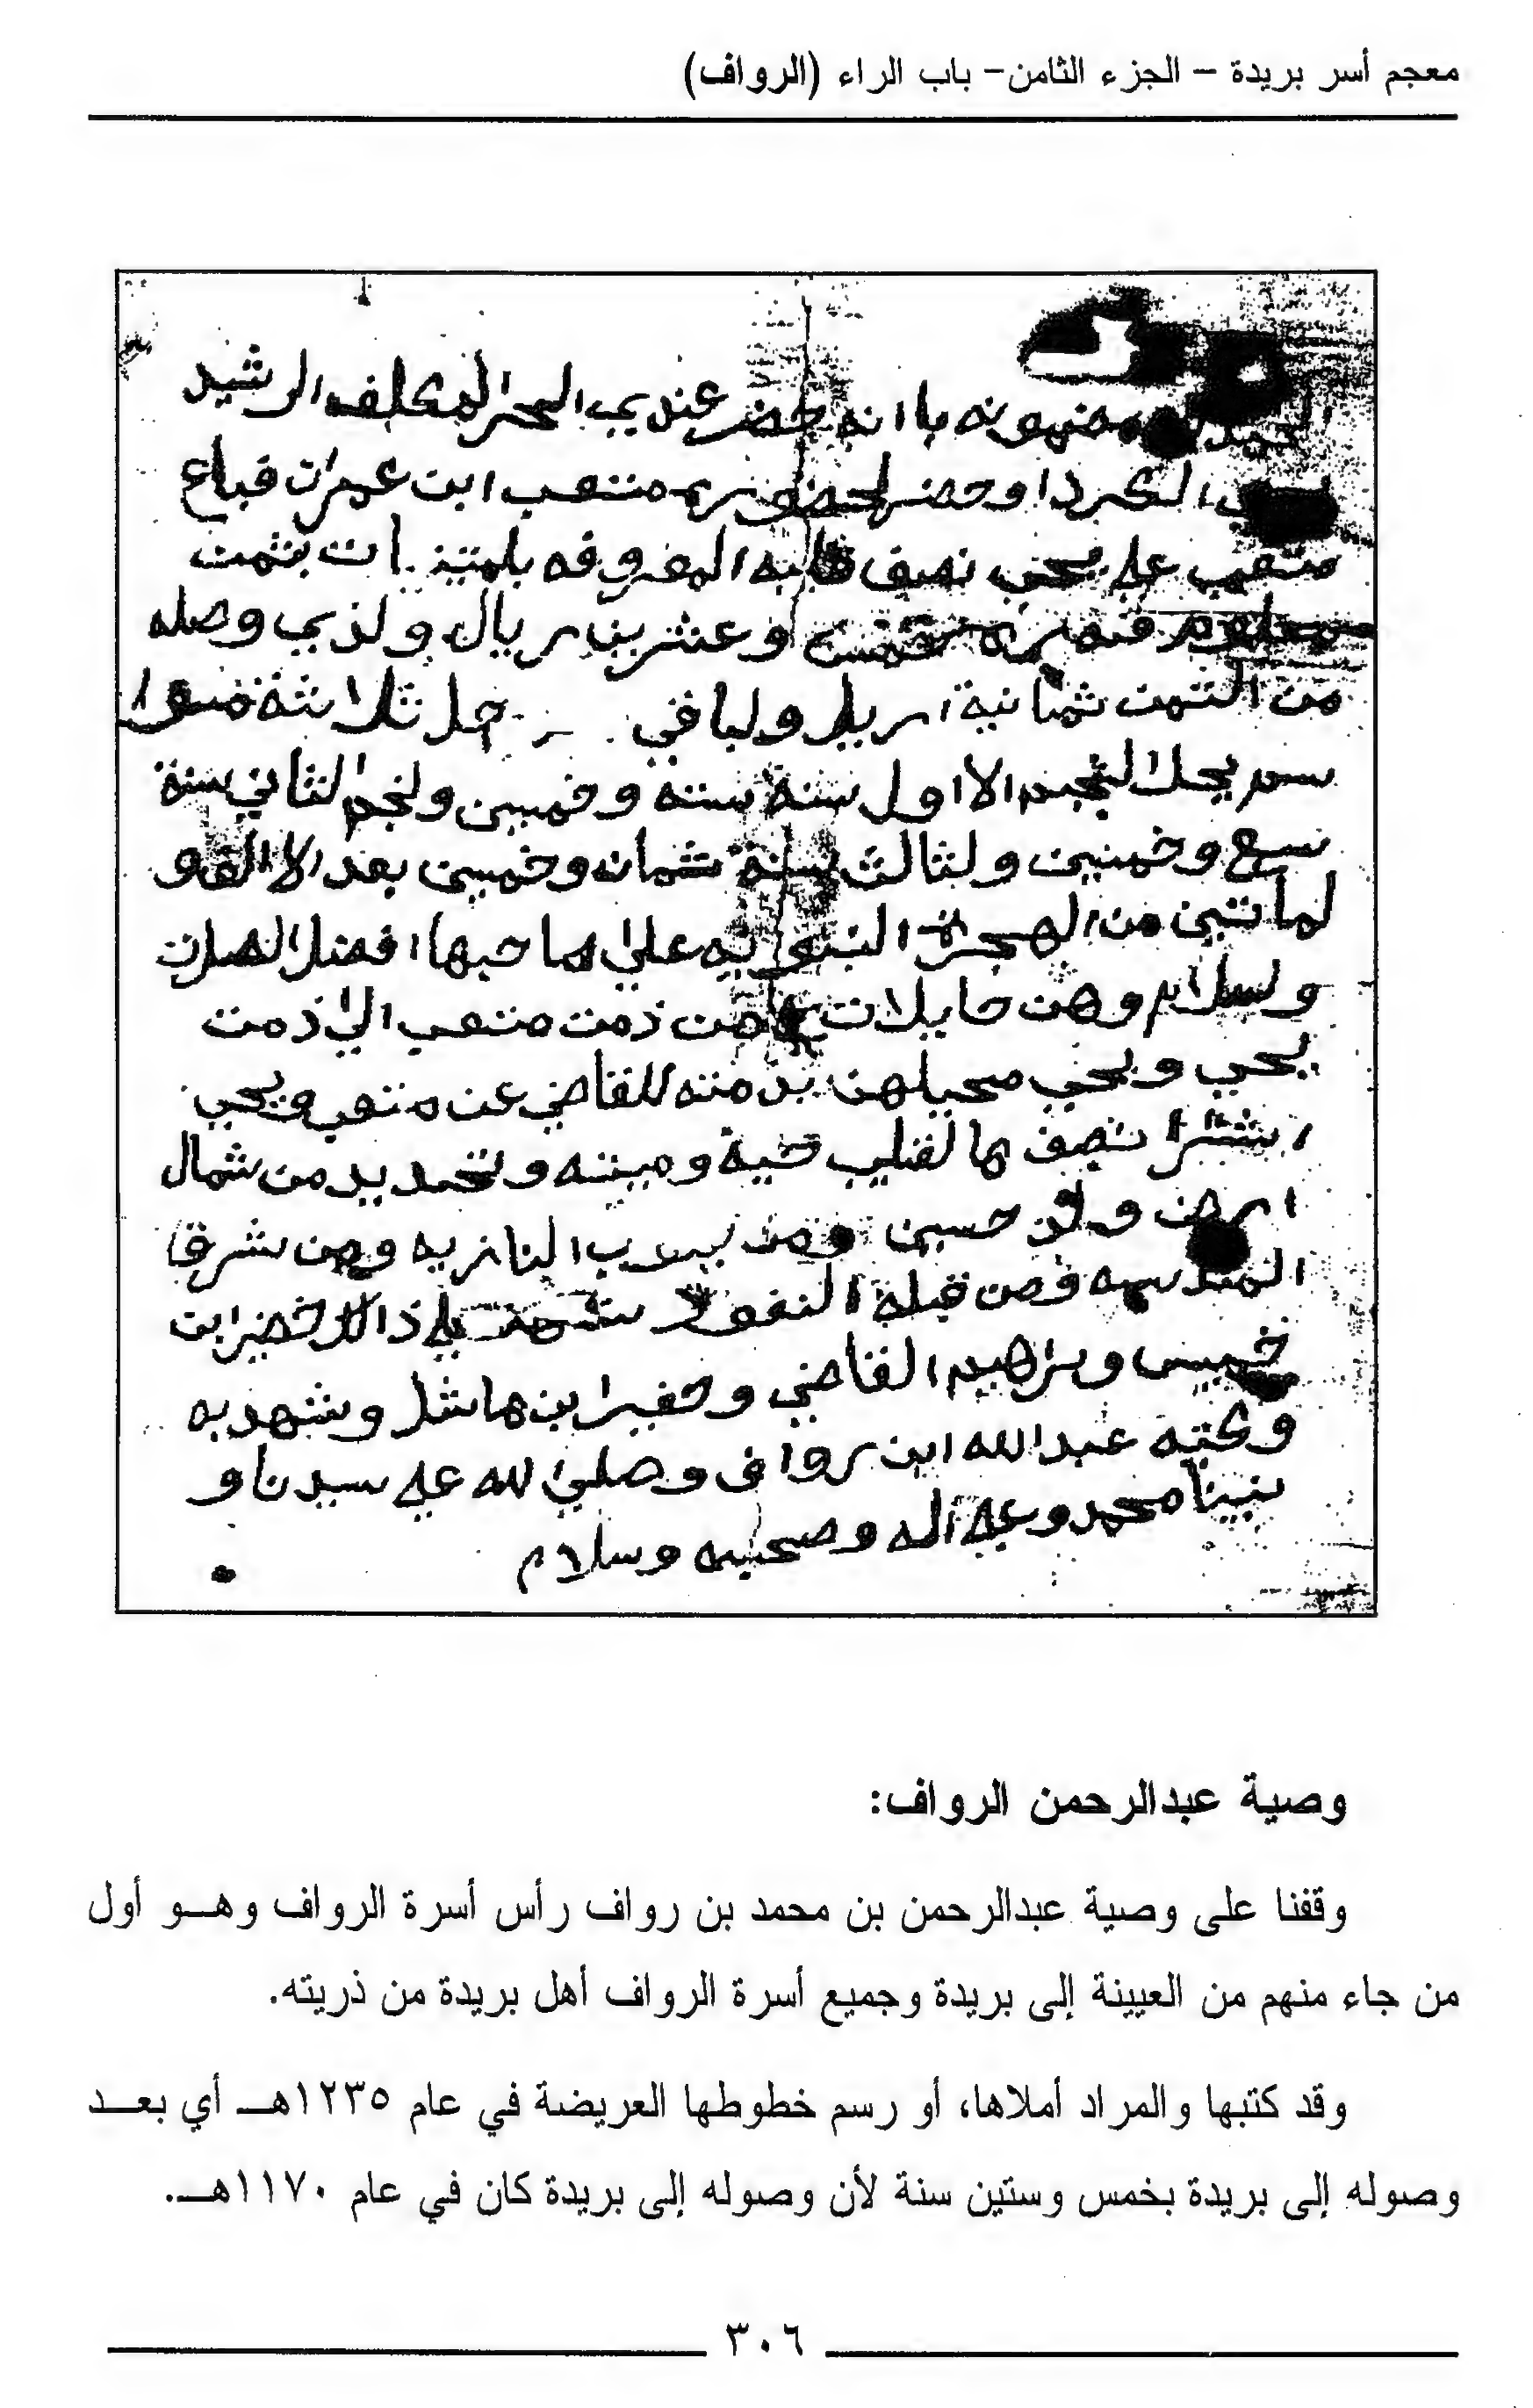 معجم أسر بريدة – الجزء الثامن– باب الراء (الرواف)
مضمونه باانه حضر عندي الحر المكلف الرشيد
الكردا وحضر لحضوره منتعب ابن عمران فباع
منتعب علي يحي نصيف المعروفه
خمس وعشرين ريال ولذي وصله
من الثمن ثمانية اريل ولباقي حل ثلاثة
يحل النجم الااول سنة ستة وخمسين ولنجم الثاني سنة
سبع وخمسين ولثالث سنة ثمان وخمسين بعد الاالف و
لماتين من الهجرة النبويه علي صاحبها افضل الصلات
ولسلام وهن حايلات من ذمت منتعب الي ذمت
يحي ويحي محيلهن بذمته للقاضي عن منتعب ويحي
اشترا نصف هالقليب حية وميته وتحديد من شمال
حسين ومن ومن شرق
ومن قبلة النفود شهد علي ذالك خضير ابن
خميس وبراهيم القاضي وخضير ابن هاشل وشهد به
وكتبه عبدالله ابن رواف وصلي لله علي سيدنا و
نبينا محمد وعلي اله وصحبه وسلام
وصية عبدالرحمن الرواف:
وقفنا على وصية عبدالرحمن بن محمد بن رواف رأس أسرة الرواف وهــو أول
من جاء منهم من العيينة إلى بريدة وجميع أسرة الرواف أهل بريدة من ذريته.
وقد كتبها والمراد أملاها، أو رسم خطوطها العريضة في عام ١٢٣٥هــ أي بعــد
وصوله إلى بريدة بخمس وستين سنة لأن وصوله إلى بريدة كان في عام ١١٧٠هــ.
٣٠٦